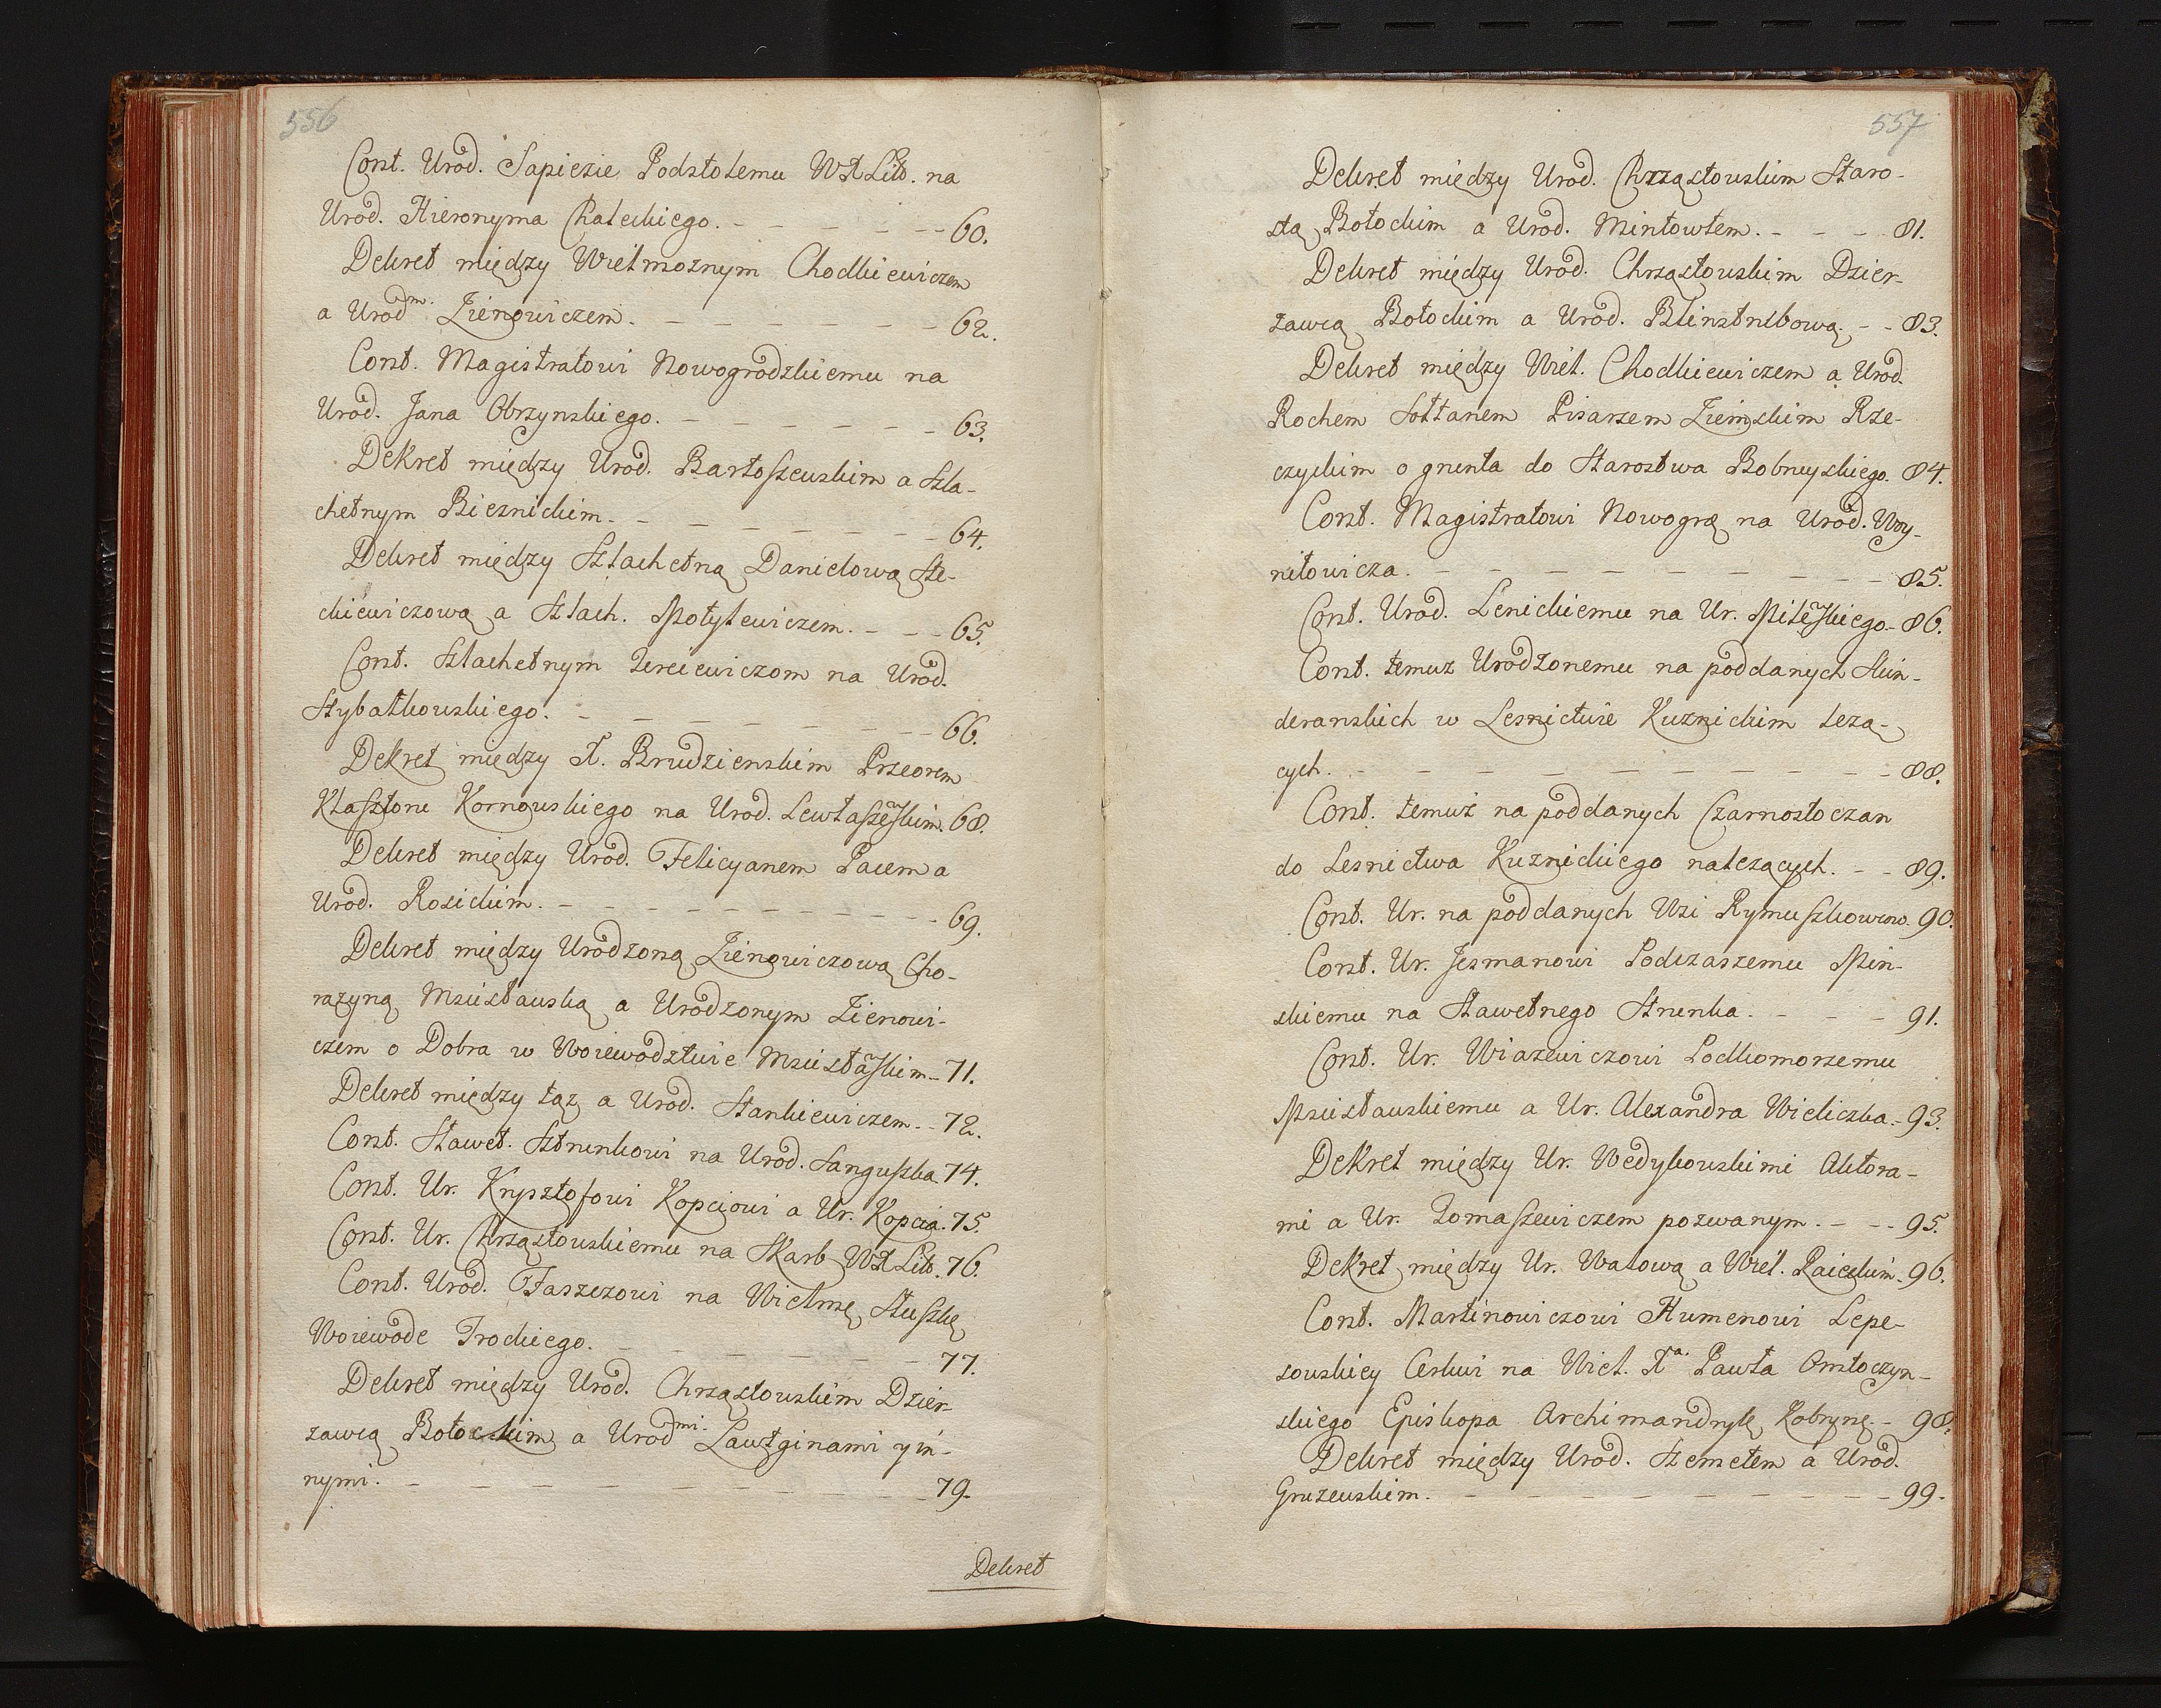 556
Const. Urod. Sapiezie Podstolemu WXLitt. na
Urod. Hieronyma Chaleckiego. - - - - - - 60.
Dekret między Wielmoznym Chodkiewiczem
a Urod^m. Zienowiczem. - - - - - - - 62.
Const. Magistratowi Nowogrodzkiemu na
Urod. Jana Obrzynskiego. - - - - - - 63.
Dekret między Urod. Bartoszewskim a Szla-
chetnym Bieznickim. - - - - - - - 64.
Dekret między Szlachetną Danielową Ste-
ckiewiczową a Szlach. Motylewiczem. - - - 65.
Const. Szlachetnym Zerciewiczom na Urod.
Stybalkowskiego. - - - - - - - - 66.
Dekret między X. Brudzienskim Przeorem
Klasztoru Kornowskiego na Urod. Lewtaszewskim. 68.
Dekret między Urod. Felicyanem Pacem a
Urod. Rosickim. - - - - - - - - - - 69.
Dekret między Urodzoną Zienowiczową Cho-
rążyną Mscisławską a Urodzonym Zienowi-
czem o Dobra w Woiewodztwie Mscisławskim - 71.
Dekret między tąz a Urod. Stankiewiczem. - 72.
Const. Sławet. Strunkowi na Urod. Sanguszka 74.
Const. Ur. Krysztofowi Kopciowi a Ur. Kopcia. 75.
Const. Ur. Chrząstowskiemu na Skarb WXLitt. 76.
Const. Urod. Faszczowi na Wielmę Słuszkę
Woiewode Trockiego. - - - - - - - 77.
Dekret między Urod. Chrząstowskim Dzier-
zawcą Bołockim a Urod^mi. Lawtginami y in-
nymi. - - - - - - - - - - 79.
Dekret
557
Dekret między Urod. Chrząstowskim Staro-
stą Bołockim a Urod. Mintowtem. - - - - 81.
Dekret między Urod. Chrząstowskim Dzier-
zawcą Bołockim a Urod. Blinstrubową. - - 83.
Dekret między Wiel. Chodkiewiczem a Urod.
Rochem Sołtanem Pisarzem Ziemskim Rze-
czyckim o grunta do Starostwa Bobruyskiego. 84.
Const. Magistratowi Nowogrę na Urod. Woy-
niłowicza. - - - - - - - - - - 85.
Const. Urod. Lenickiemu na Ur. Milewskiego - 86.
Const. temuz Urodzonemu na poddanych Skin-
deranskich w Lesnictwie Kuznickim lezą-
cych. - - - - - - - - - - - 88.
Const. temuż na poddanych Czarnostoczan
do Lesnictwa Kuznickiego nalezących. - - 89.
Const. Ur. na poddanych Wsi Rymuszkowców. 90.
Const. Ur. Jesmanowi Podczaszemu Min-
skiemu na Sławetnego Strunka. - - - - 91.
Const. Ur. Wiazewiczowi Podkomorzemu
Mscisławskiemu a Ur. Alexandra Wieliczka. - 93.
Dekret między Ur. Wedykowskimi Aktora-
mi a Ur. Tomaszewiczem pozwanym. - - - 95.
Dekret między Ur. Walową a Wiel. Raieckim. 96.
Const. Martinowiczowi Humenowi Lepe-
sowskiey Cerkwi na Wiel. X^a. Pawła Omłoczyn-
skiego Episkopa Archimandrytę Kobrynę. - 98.
Dekret między Urod. Szemetem a Urod.
Gruzewskim. - - - - - - - - - - 99.